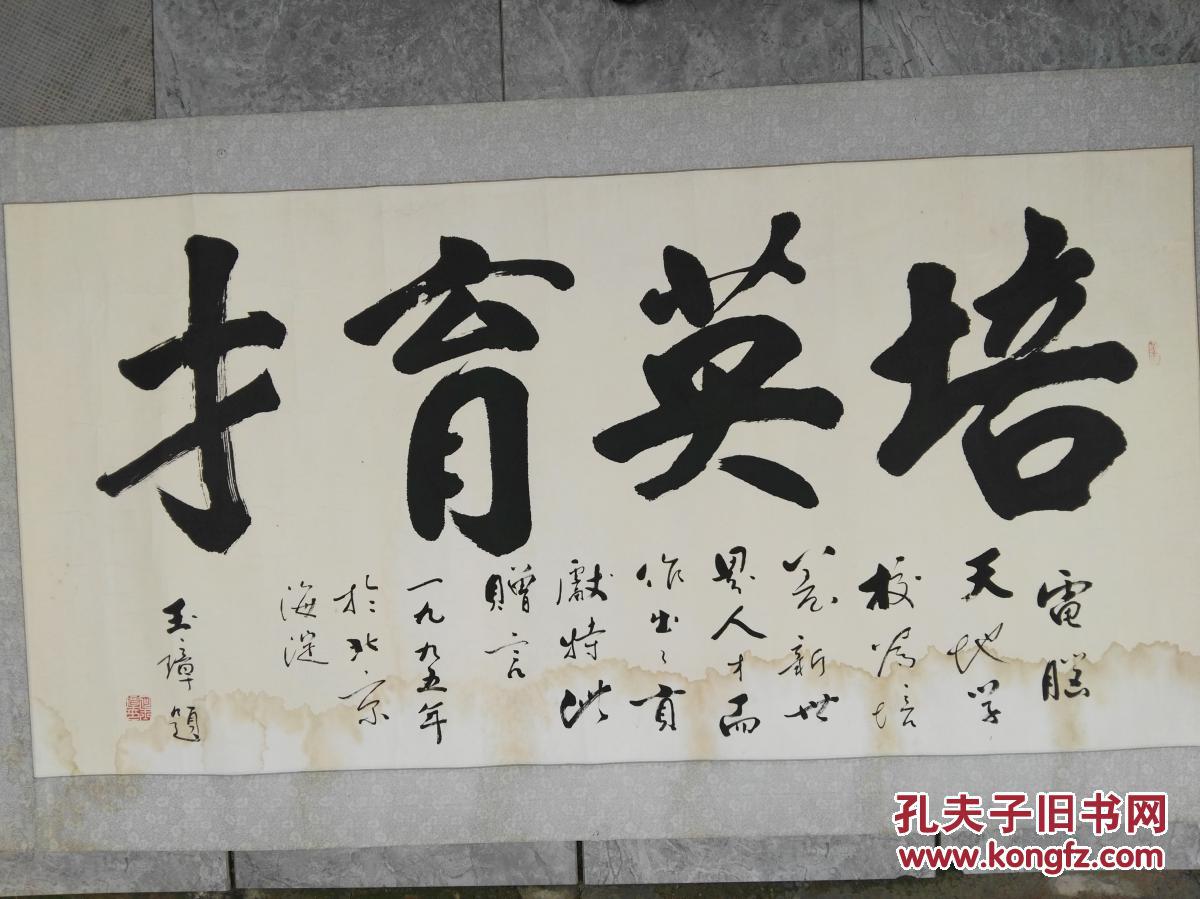 培英育才
電腦
天地学
校為培
养新世
界人才而
作出之贡
獻特此
贈言
一九九五年
於北京
海淀
玉璋題
孔夫子旧书网
www.kongfz.com